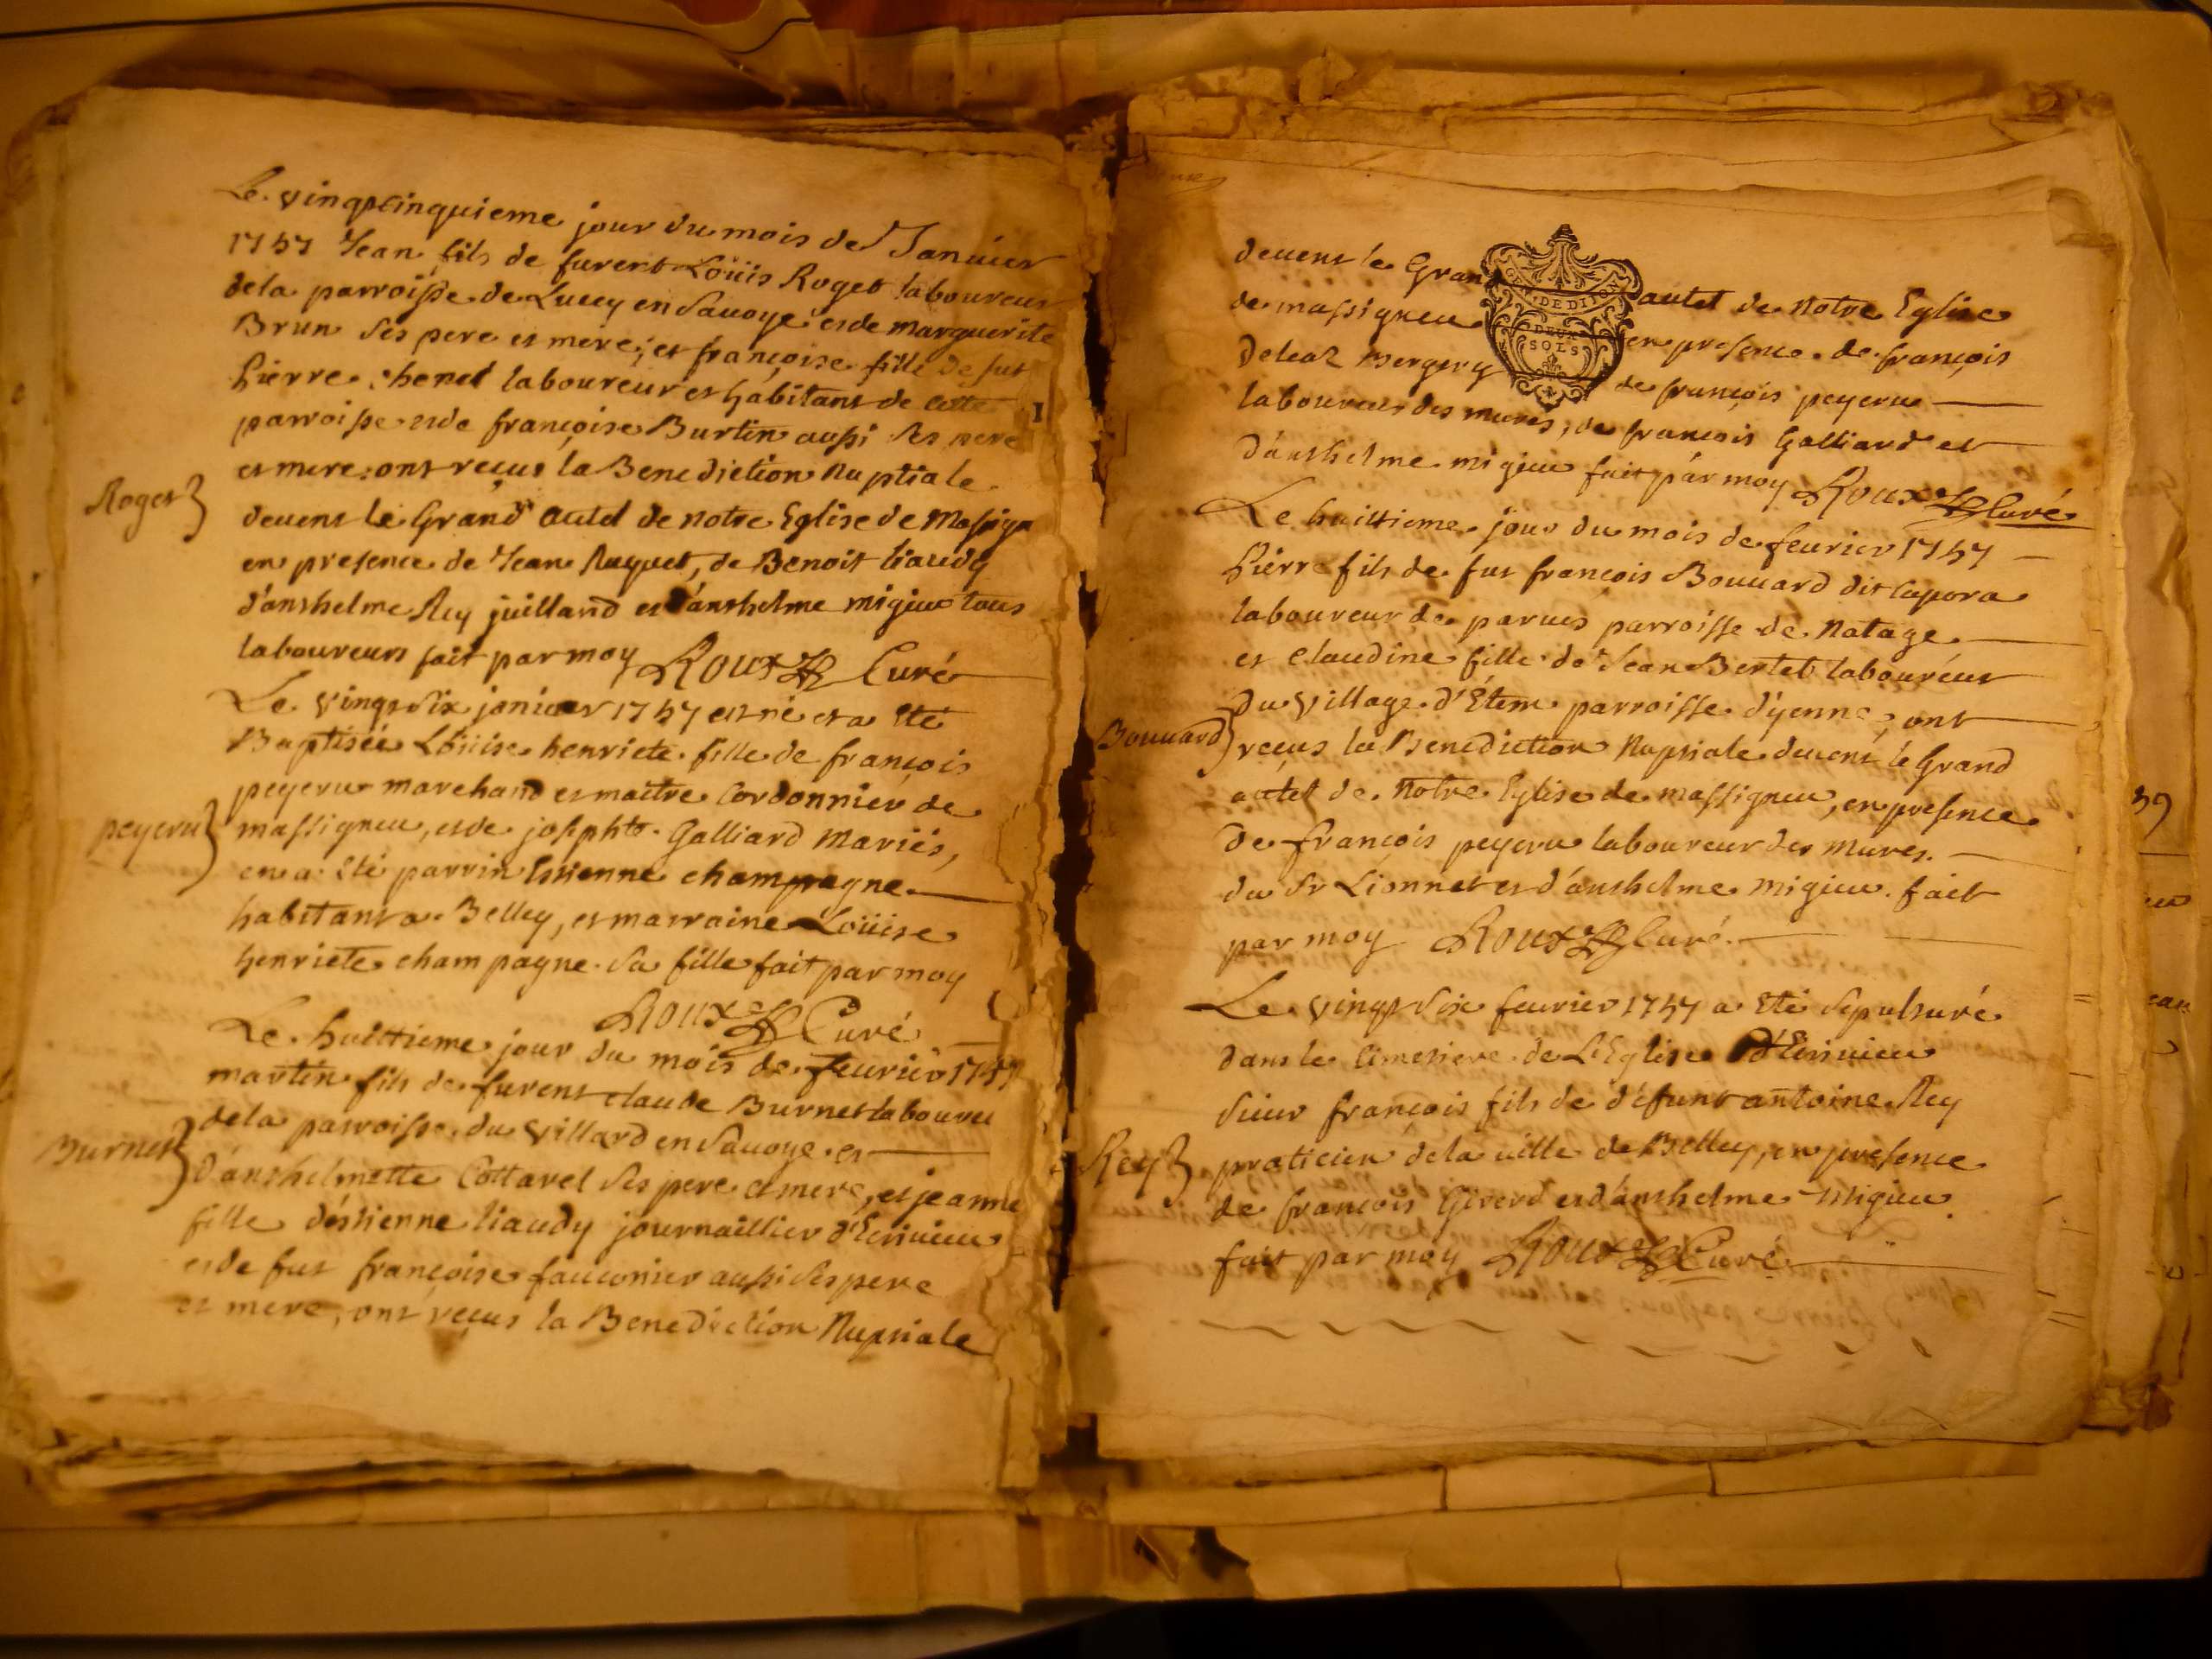 Le vingtcinquieme jour du mois de Janvier
1757 Jean fils de furent Loüis Roget laboureur
dela parroisse de Lucey en Savoye et de marguerite
Brun ses pere et mere, et françoise fille de fut
Pierre chenel laboureur et habitant de cette
parroisse et de françoise Burtin aussi ses pere
et mere ont reçus la Benediction Nuptiale
Roget
devent le Grand autel de notre Eglise de Massign
en presence de Jean Ruquet, de Benoit liaudy
d'anthelme Rey juilland et d'anthelme migieu tous
laboureurs fait par moy Roux Curé
Le vingt six janvier 1757 est né et a Eté
Baptisée Loüise henriete fille de françois
peyeru marchand et maitre Cordonnier de
peyeru
massigneu, et de josephte Galliard Mariés,
en a Eté parrin Estienne champagne
habitant a Belley, et marraine Loüise
henriete champagne sa fille fait par moy
Roux Curé
Le huittieme jour du mois de fevrier 1757
martin fils de furent claude Burnet laboureu
dela parroisse du villard en Savoye et
Burnet
d'anthelmette Cottarel ses pere et mere, et jeanne
fille d'éstienne liaudy journaillier d'Ecrivieu
et de fut françoise fauconier aussi ses pere
et mere, ont reçus la Benediction Nuptiale
devent le Grand autel de notre Eglise
GEN. DE DIJON
DEUX
SOLS
de massigneu en presence de françois
deleaz Bergery de françois peyeru
laboureur des mures, de françois Galliard et
d'anthelme migieu fait par moy Roux Curé
Le huittieme jour du mois de fevrier 1757
Pierre fils de fut françois Bouvard dit Capora
laboureur de parves parroisse de Natage
et Claudine fille de Jean Bertet laboureur
du village d'Étem parroisse d'yenne, ont
Bouvard
recus la Benediction Nuptiale devent le Grand
autel de Notre Eglise de massigneu, en presence
de françois peyeru laboureur des mures
du Sr Lionnet et d'anthelme migieu fait
par moy Roux Curé
Le vingt six fevrier 1757 a Eté sepulturé
dans le Cimetiere de L'Eglise d'Ecrivieu
Sieur françois fils de défunt antoine Rey
Rey
praticien dela ville de Belley, en presence
de françois Girerd et d'anthelme Migieu
fait par moy Roux Curé
39